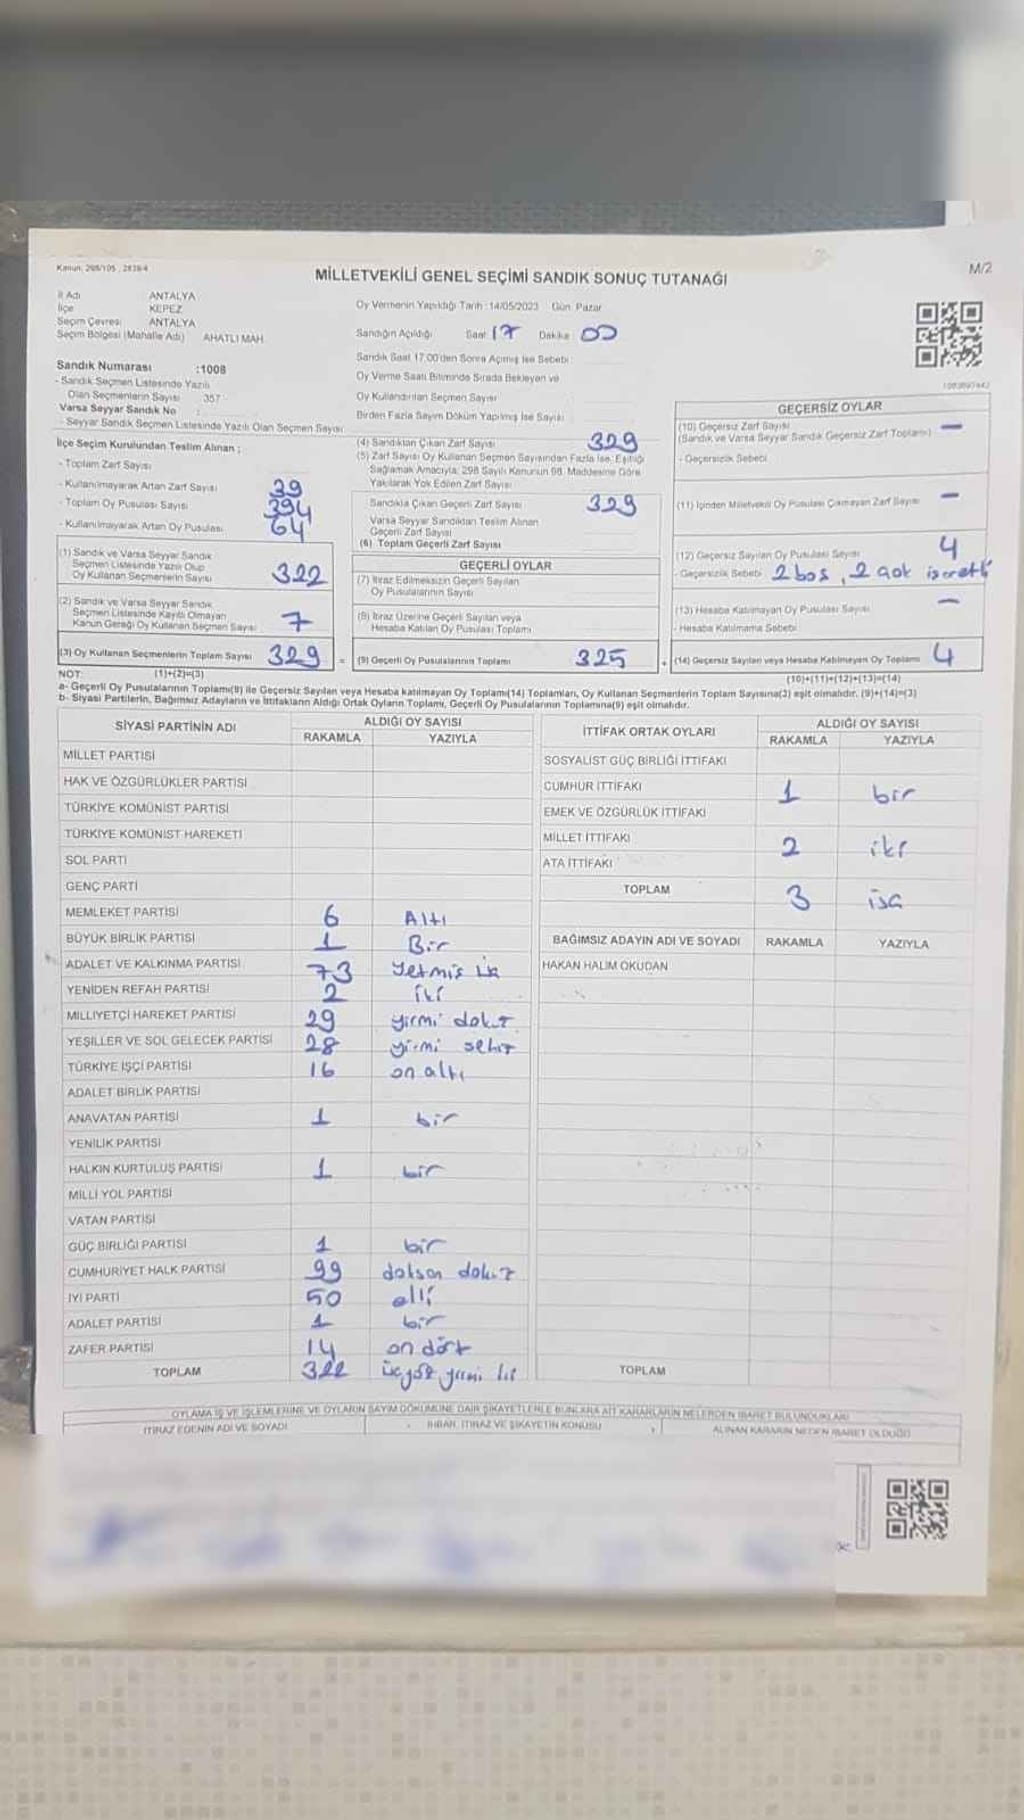 Kanun: 298/105 , 2839/4
M/2
MİLLETVEKİLİ GENEL SEÇİMİ SANDIK SONUÇ TUTANAĞI
İl Adı ANTALYA
İlçe KEPEZ
Seçim Çevresi ANTALYA
Seçim Bölgesi (Mahalle Adı) AHATLI MAH.
Oy Vermenin Yapıldığı Tarih :14/05/2023 Gün: Pazar
Sandığın Açıldığı Saat 17 Dakika 00
Sandık Saat 17:00'den Sonra Açılmış İse Sebebi
Oy Verme Saati Bitiminde Sırada Bekleyen ve
Oy Kullandırılan Seçmen Sayısı
Birden Fazla Sayım Döküm Yapılmış İse Sayısı
Sandık Numarası :1008
- Sandık Seçmen Listesinde Yazılı
Olan Seçmenlerin Sayısı 357
Varsa Seyyar Sandık No :
- Seyyar Sandık Seçmen Listesinde Yazılı Olan Seçmen Sayısı
İlçe Seçim Kurulundan Teslim Alınan :
- Toplam Zarf Sayısı
- Kullanılmayarak Artan Zarf Sayısı 39
- Toplam Oy Pusulası Sayısı 394
- Kullanılmayarak Artan Oy Pusulası 64
(1) Sandık ve Varsa Seyyar Sandık
Seçmen Listesinde Yazılı Olup
Oy Kullanan Seçmenlerin Sayısı 322
(2) Sandık ve Varsa Seyyar Sandık
Seçmen Listesinde Kayıtlı Olmayan
Kanun Gereği Oy Kullanan Seçmen Sayısı 7
(3) Oy Kullanan Seçmenlerin Toplam Sayısı 329 =
(1)+(2)=(3)
(4) Sandıktan Çıkan Zarf Sayısı 329
(5) Zarf Sayısı Oy Kullanan Seçmen Sayısından Fazla İse; Eşitliği
Sağlamak Amacıyla; 298 Sayılı Kanunun 98. Maddesine Göre
Yakılarak Yok Edilen Zarf Sayısı
Sandıkta Çıkan Geçerli Zarf Sayısı 329
Varsa Seyyar Sandıktan Teslim Alınan
Geçerli Zarf Sayısı
(6) Toplam Geçerli Zarf Sayısı
GEÇERLİ OYLAR
(7) İtiraz Edilmeksizin Geçerli Sayılan
Oy Pusulalarının Sayısı
(8) İtiraz Üzerine Geçerli Sayılan veya
Hesaba Katılan Oy Pusulası Toplamı
(9) Geçerli Oy Pusulalarının Toplamı 325 +
GEÇERSİZ OYLAR
(10) Geçersiz Zarf Sayısı —
(Sandık ve Varsa Seyyar Sandık Geçersiz Zarf Toplamı)
- Geçersizlik Sebebi
(11) İçinden Milletvekili Oy Pusulası Çıkmayan Zarf Sayısı —
(12) Geçersiz Sayılan Oy Pusulası Sayısı 4
- Geçersizlik Sebebi 2 boş , 2 çok işaretli
(13) Hesaba Katılmayan Oy Pusulası Sayısı —
- Hesaba Katılmama Sebebi
(14) Geçersiz Sayılan veya Hesaba Katılmayan Oy Toplamı 4
(10)+(11)+(12)+(13)=(14)
NOT:
a- Geçerli Oy Pusulalarının Toplamı(9) ile Geçersiz Sayılan veya Hesaba katılmayan Oy Toplamı(14) Toplamları, Oy Kullanan Seçmenlerin Toplam Sayısına(3) eşit olmalıdır. (9)+(14)=(3)
b- Siyasi Partilerin, Bağımsız Adayların ve İttifakların Aldığı Ortak Oyların Toplamı, Geçerli Oy Pusulalarının Toplamına(9) eşit olmalıdır.
SİYASİ PARTİNİN ADI ALDIĞI OY SAYISI
RAKAMLA YAZIYLA
MİLLET PARTİSİ
HAK VE ÖZGÜRLÜKLER PARTİSİ
TÜRKİYE KOMÜNİST PARTİSİ
TÜRKİYE KOMÜNİST HAREKETİ
SOL PARTİ
GENÇ PARTİ
MEMLEKET PARTİSİ 6 Altı
BÜYÜK BİRLİK PARTİSİ 1 Bir
ADALET VE KALKINMA PARTİSİ 73 yetmiş
YENİDEN REFAH PARTİSİ 2 iki
MİLLİYETÇİ HAREKET PARTİSİ 29 yirmi dokuz
YEŞİLLER VE SOL GELECEK PARTİSİ 28 yirmi sekiz
TÜRKİYE İŞÇİ PARTİSİ 16 on altı
ADALET BİRLİK PARTİSİ
ANAVATAN PARTİSİ 1 bir
YENİLİK PARTİSİ
HALKIN KURTULUŞ PARTİSİ 1 bir
MİLLİ YOL PARTİSİ
VATAN PARTİSİ
GÜÇ BİRLİĞİ PARTİSİ 1 bir
CUMHURİYET HALK PARTİSİ 99 doksan dokuz
İYİ PARTİ 50 elli
ADALET PARTİSİ 1 bir
ZAFER PARTİSİ 14 on dört
TOPLAM 322 üçyüz yirmi
İTTİFAK ORTAK OYLARI ALDIĞI OY SAYISI
RAKAMLA YAZIYLA
SOSYALİST GÜÇ BİRLİĞİ İTTİFAKI
CUMHUR İTTİFAKI 1 bir
EMEK VE ÖZGÜRLÜK İTTİFAKI
MİLLET İTTİFAKI 2 iki
ATA İTTİFAKI
TOPLAM 3 üç
BAĞIMSIZ ADAYIN ADI VE SOYADI RAKAMLA YAZIYLA
HAKAN HALİM OKUDAN
TOPLAM
OYLAMA İŞ VE İŞLEMLERİNE VE OYLARIN SAYIM DÖKÜMÜNE DAİR ŞİKAYETLERLE BUNLARA AİT KARARLARIN NELERDEN İBARET BULUNDUKLARI
İTİRAZ EDENİN ADI VE SOYADI İHBAR, İTİRAZ VE ŞİKAYETİN KONUSU ALINAN KARARIN NEDEN İBARET OLDUĞU